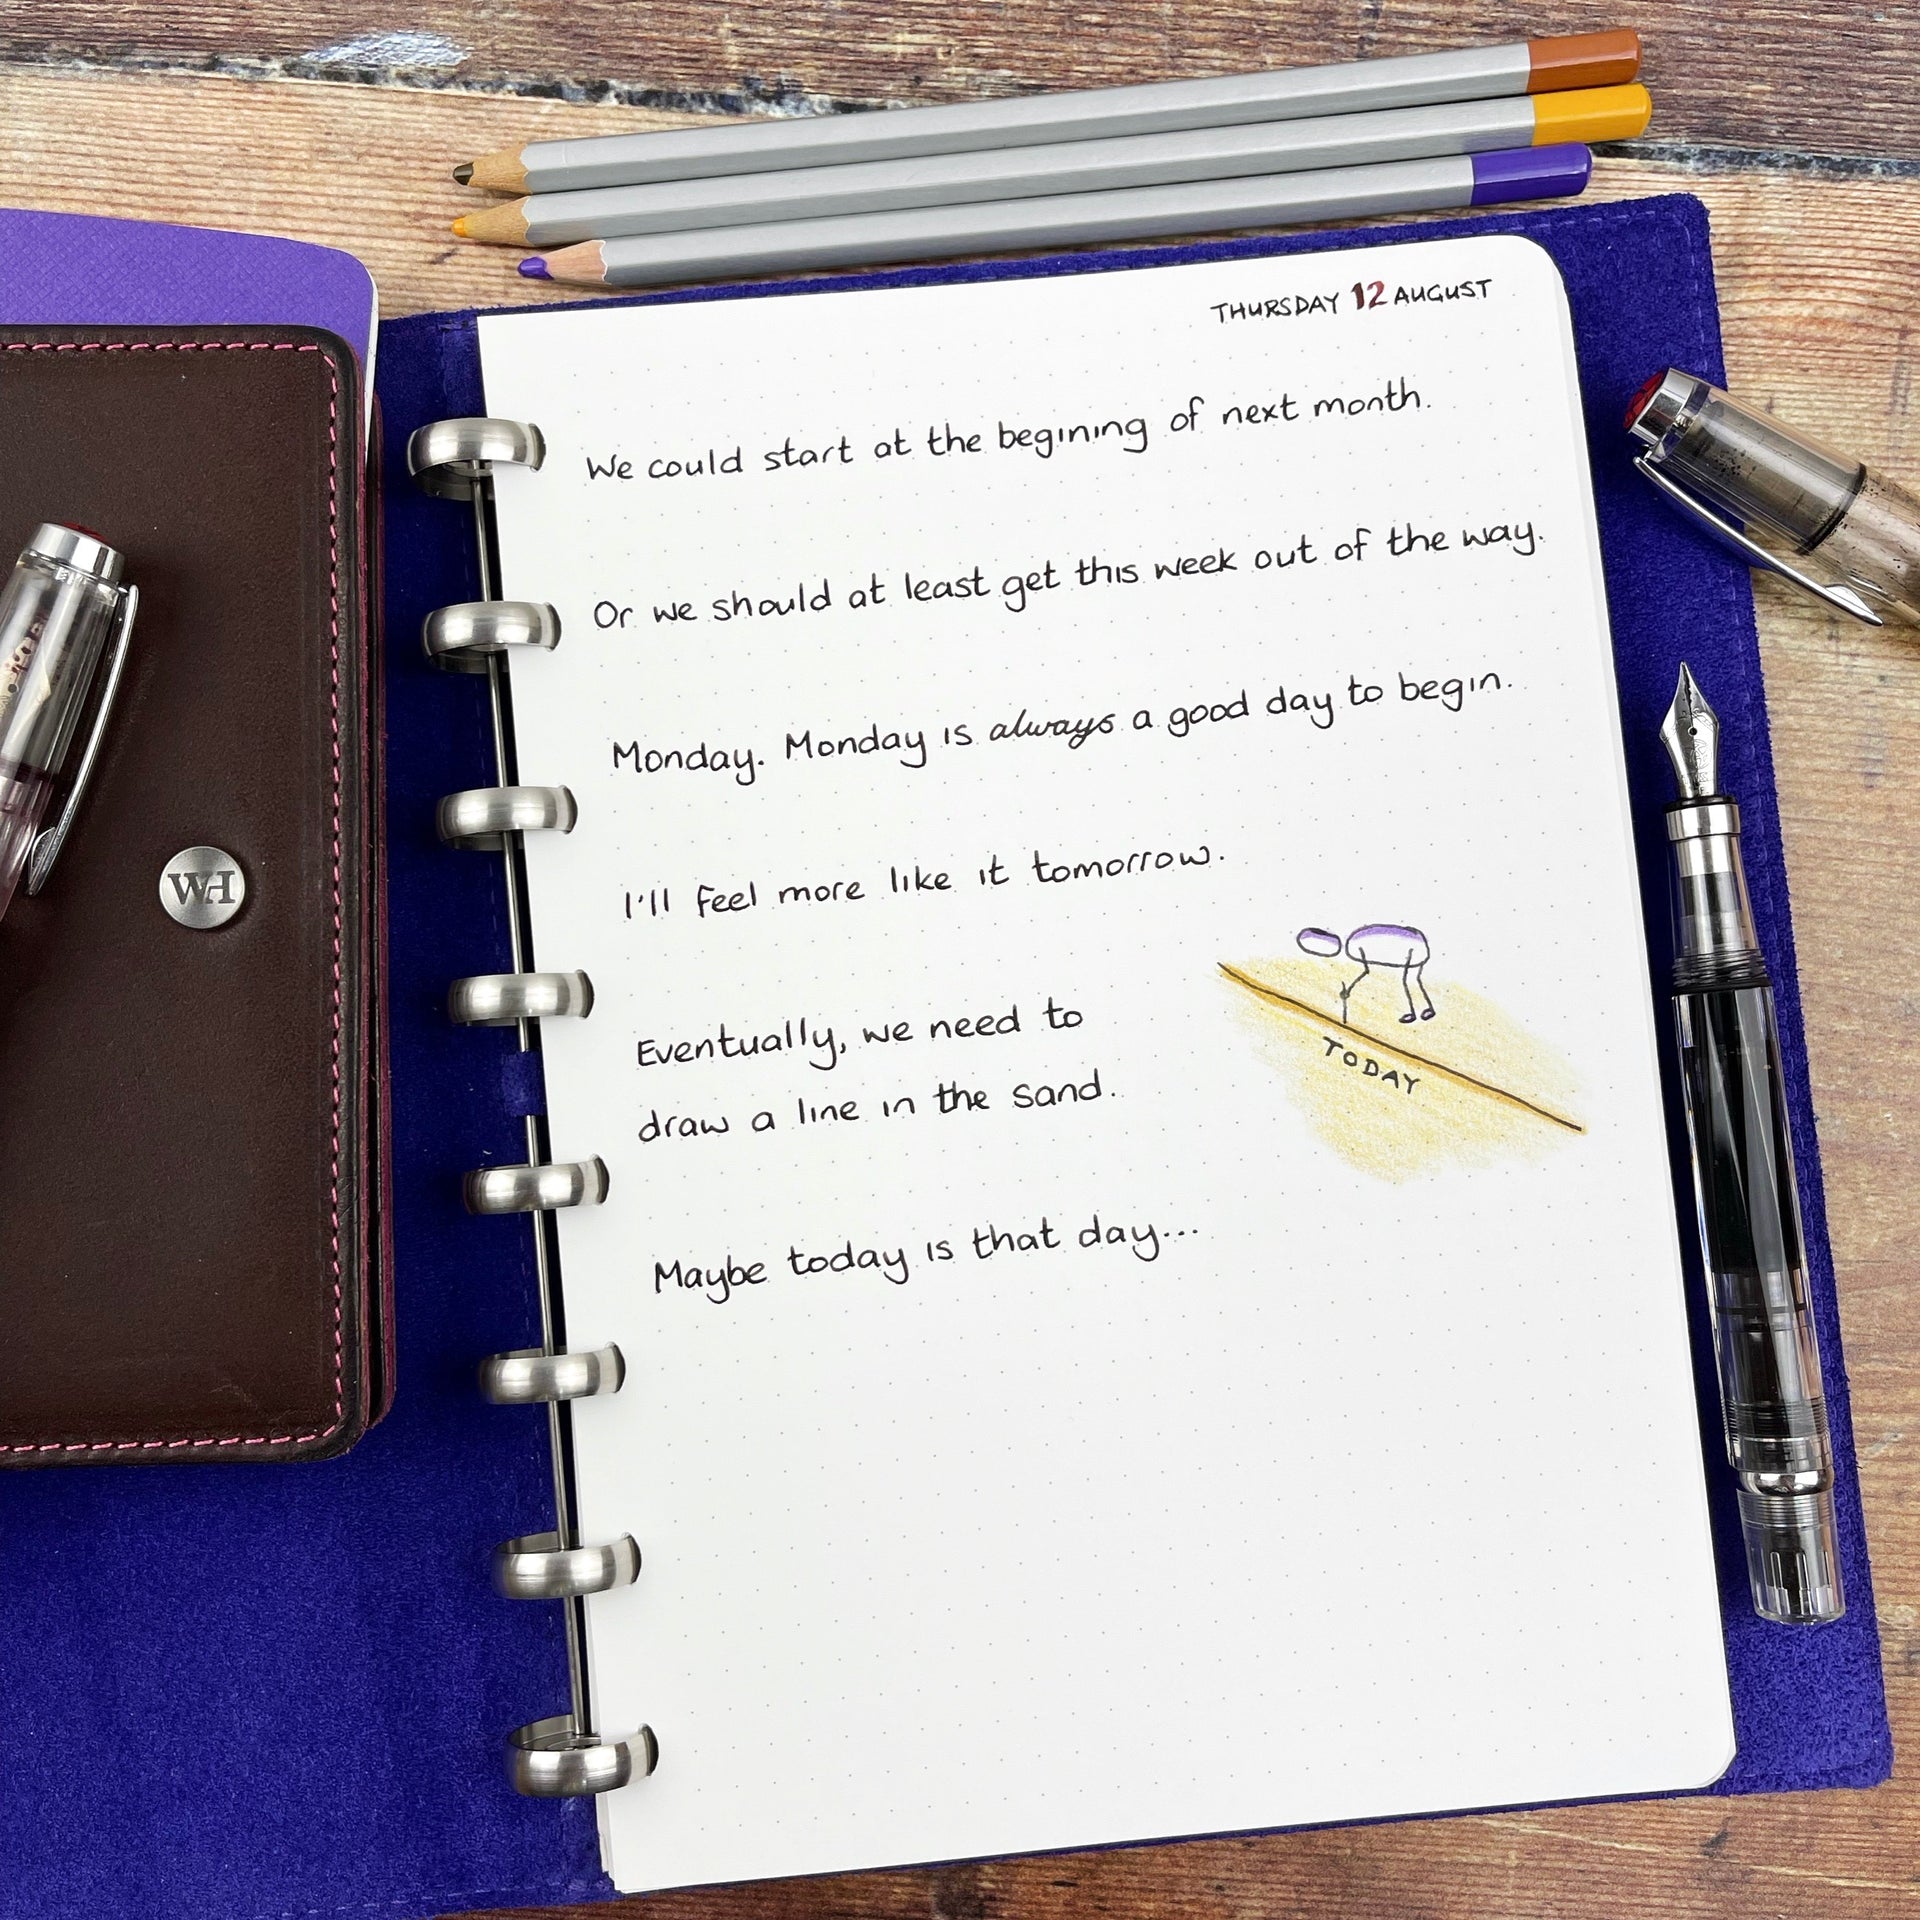 THURSDAY 12 AUGUST
We could start at the begining of next month.
Or we should at least get this week out of the way.
Monday. Monday is always a good day to begin.
I'll feel more like it tomorrow.
Eventually, we need to
draw a line in the sand.
TODAY
Maybe today is that day...
WH